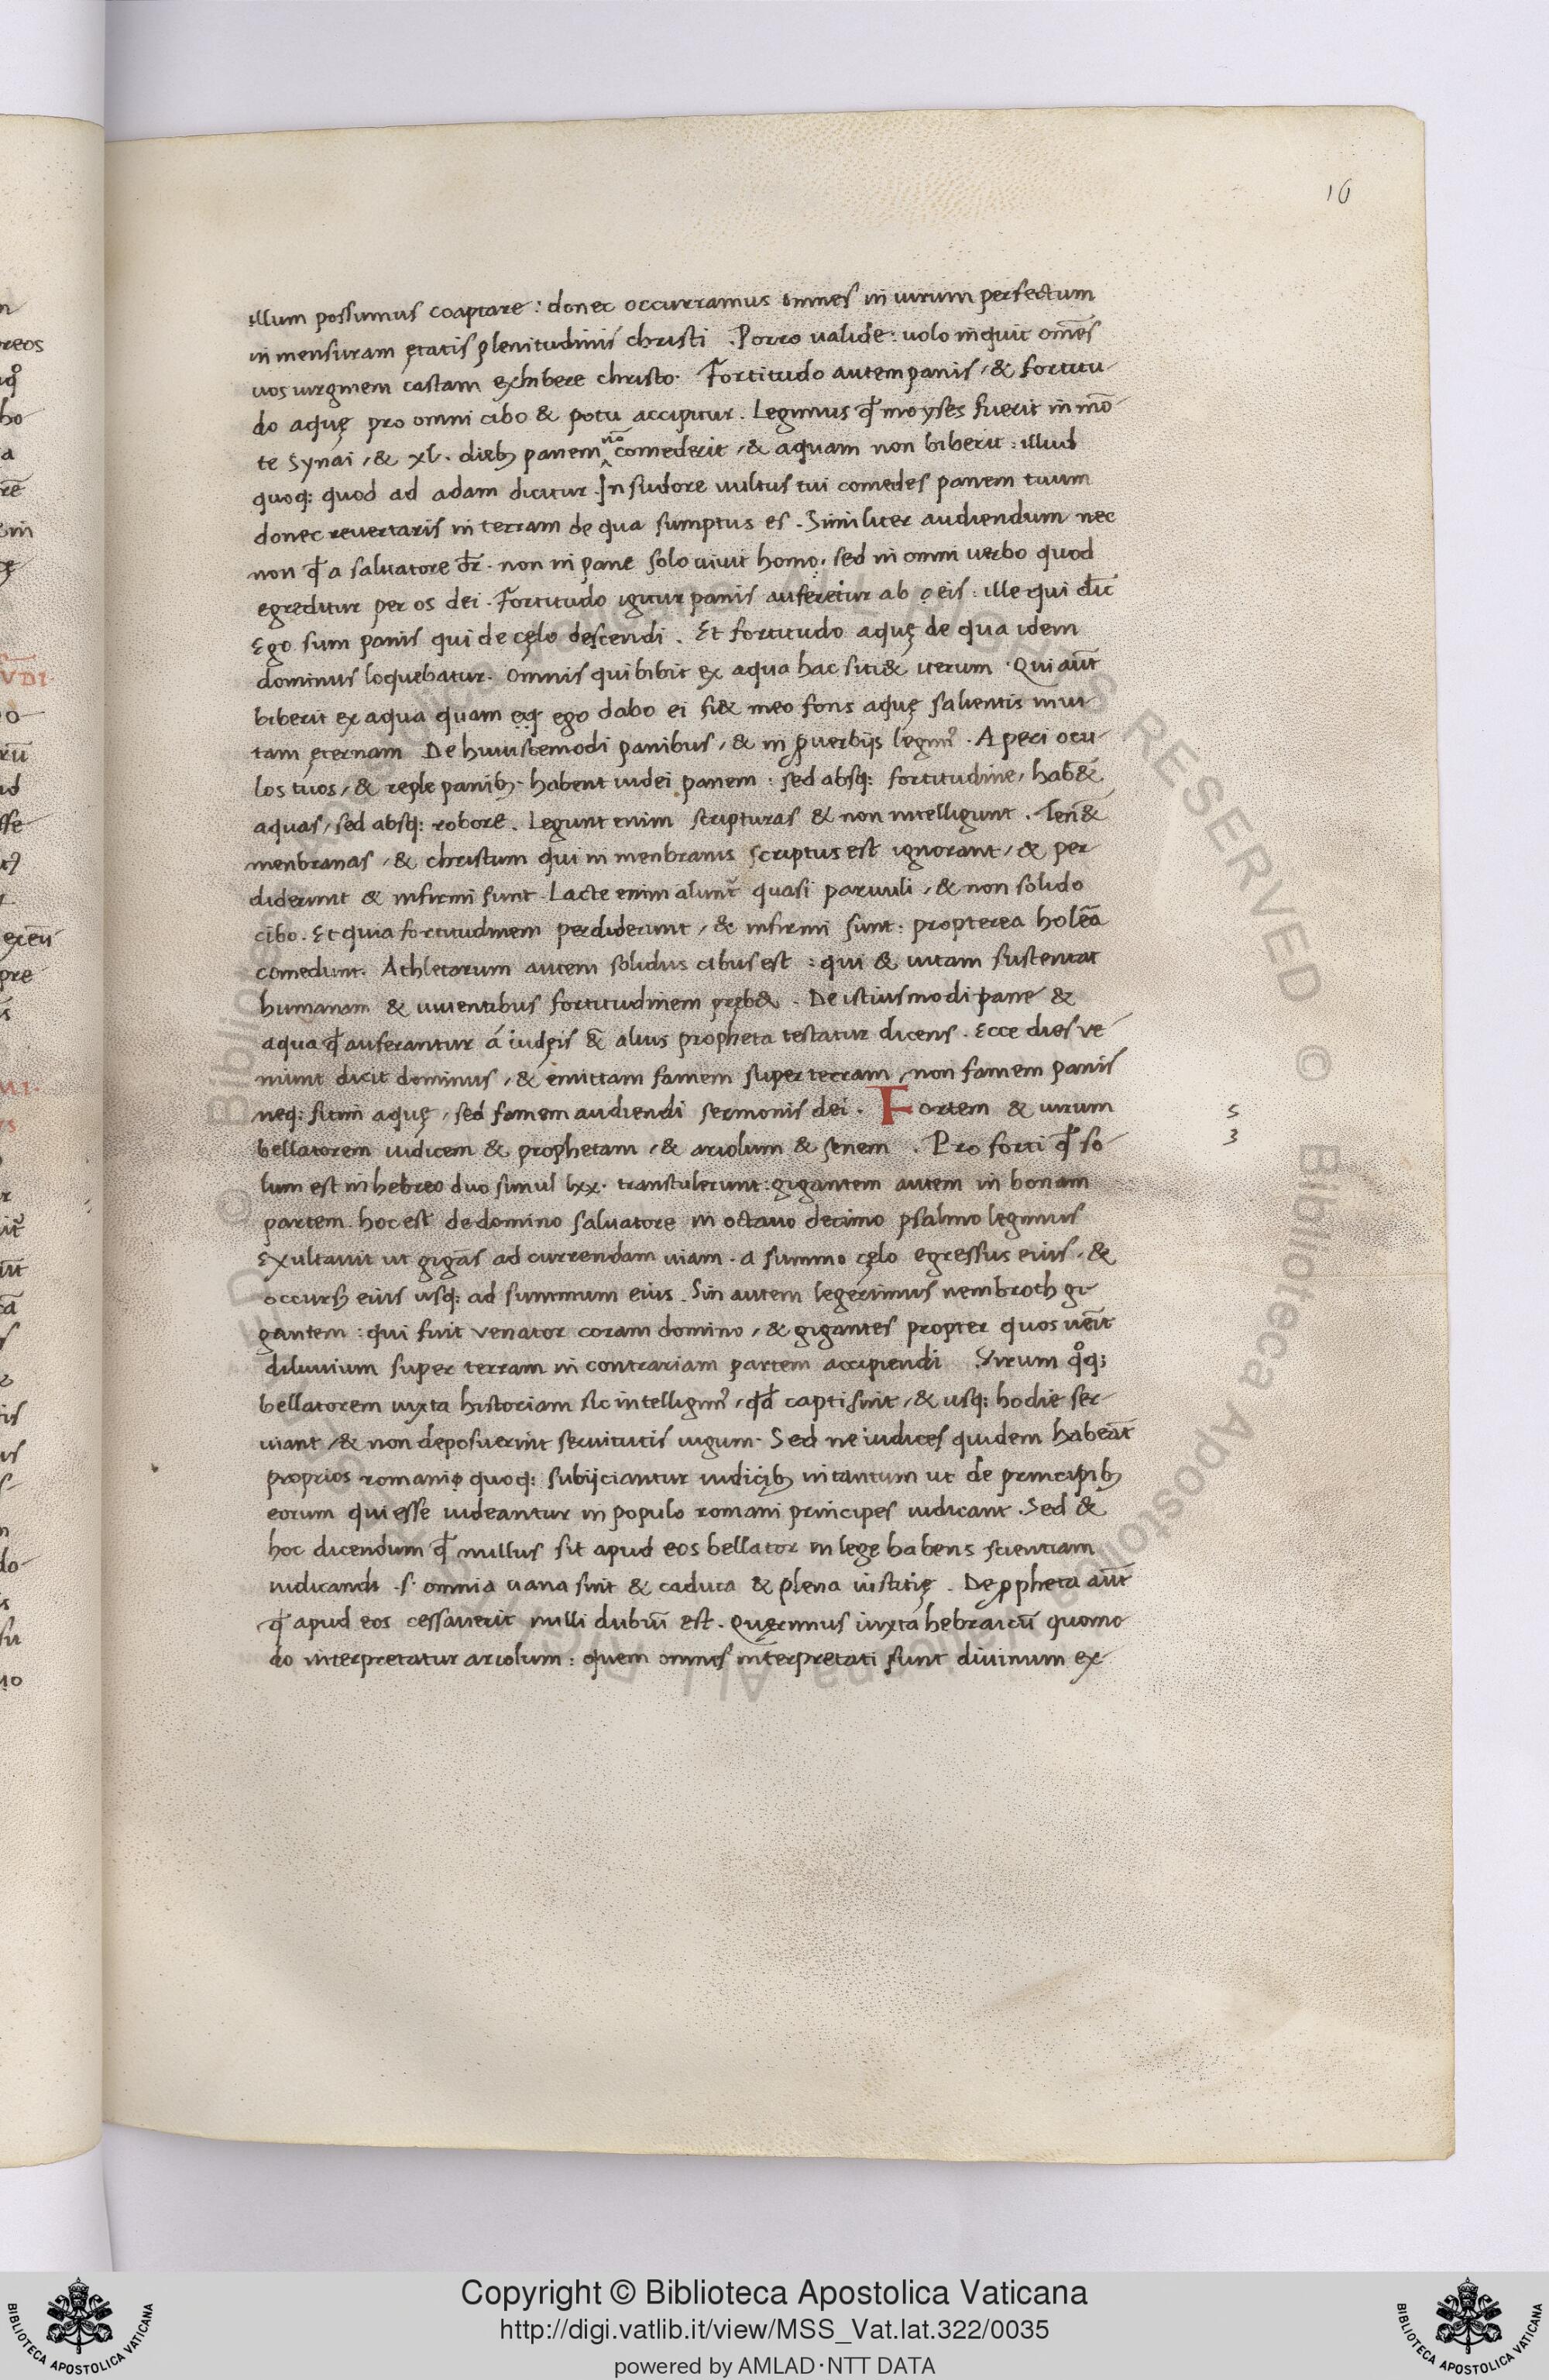 16
illum possumus coaptare : donec occurramus omnes in uirum perfectum
in mensuram ętatis plenitudinis christi . Porro ualide : uolo inquit om̄es
uos uirginem castam exhibere christo . Fortitudo autem panis , & fortitu-
do aquę pro omni cibo & potu accipitur . Legimus qđ moyses fuerit in mō-
te Synai , & xl . dieb; panem nō comederit , & aquam non biberit : illud
quoq; quod ad adam dicitur . In sudore uultus tui comedes panem tuum
donec reuertaris in terram de qua sumptus es . Similiter audiendum nec
non qđ a saluatore dr̄ . non in pane solo uiuit homo , sed in omni uerbo quod
egreditur per os dei . Fortitudo igitur panis auferetur ab eis : ille qui dīc
Ego sum panis qui de cęlo descendi . Et fortitudo aquę de qua idem
dominus loquebatur . Omnis qui bibit ex aqua hac siti& iterum . Qui aūt
biberit ex aqua quam ego dabo ei fi& in eo fons aquę salientis in ui-
tam ęternam De huiuscemodi panibus , & in ꝓuerbijs legim᷒ . Aperi ocu-
los tuos , & reple panib; . habent iudei panem : sed absq; fortitudine , hab&
aquas , sed absq; robore . Legunt enim scripturas & non intelligunt . Ten̄&
menbranas , & christum qui in menbranis scriptus est ignorant , & per
diderunt & infirmi sunt . Lacte enim alunt᷒ quasi paruuli , & non solido
cibo . Et quia fortitudinem perdiderunt , & infirmi sunt : propterea holēa
comedunt . Athletarum autem solidus cibus est : qui & uitam sustentat
humanam & uiuentibus fortitudinem pręb& . De istiusmodi pane &
aqua qđ auferantur á iudęis & alius propheta testatur dicens . Ecce dies ve-
niunt dicit dominus , & emittam famem super terram , non famem panis
neq; sitim aquę , sed famem audiendi sermonis dei . Fortem & uirum
5
3
bellatorem iudicem & prophetam , & ariolum & senem . Pro forti qđ so-
lum est in hebreo duo simul lxx . transtulerunt : gigantem autem in bonam
partem . hoc est de domino saluatore in octauo decimo psalmo legimus
Exultauit ut gigas ad currendam uiam . a summo cęlo egressus eius , &
occurs; eius usq; ad summum eius . Sin autem legerimus nembroth gi-
gantem : qui fuit venator coram domino , & gigantes propter quos uēit
diluuium super terram in contrariam partem accipiendi Virum qͦq;
bellatorem iuxta historiam sic intelligim᷒ , qđ capti sint , & usq; hodie ser-
uiant , & non deposuerint seruitutis iugum . Sed ne iudices quidem habeāt
proprios romanis quoq; subijciantur iudicib; intantum ut de principib;
eorum qui esse uideantur in populo romani principes iudicant . Sed &
hoc dicendum qđ nullus sit apud eos bellator in lege habens scientiam
iudicandi . s . omnia uana sint & caduca & plena iustitię . De ꝓpheta aūt
qđ apud eos cessauerit nulli dubiū est . Quęrimus iuxta hebraicū quomo-
do interpretatur ariolum : quem omnes interpretati sunt diuinum ex
Copyright © Biblioteca Apostolica Vaticana
http://digi.vatlib.it/view/MSS_Vat.lat.322/0035
powered by AMLAD·NTT DATA